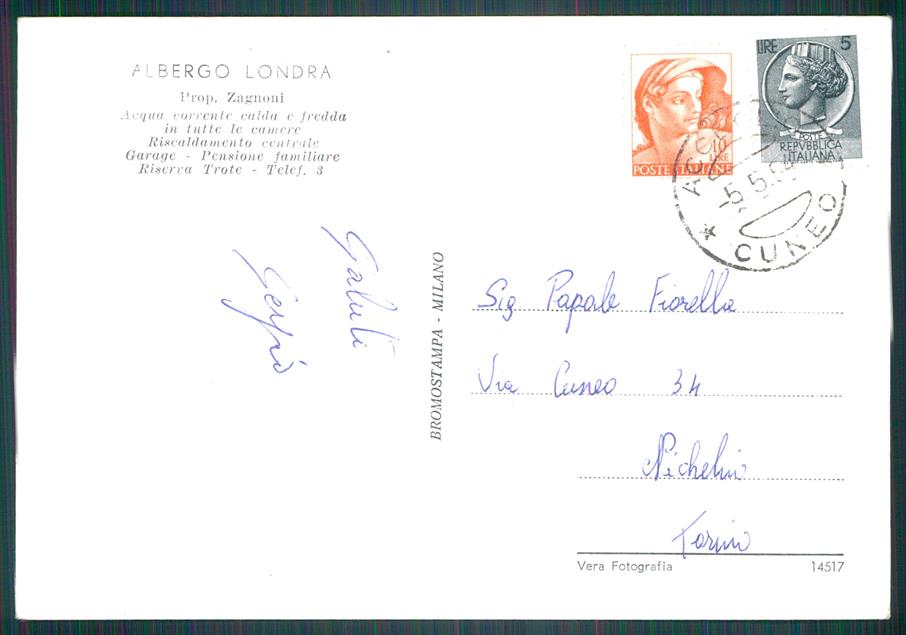 ALBERGO LONDRA
Prop. Zagnoni
Acqua corrente calda e fredda
in tutte le camere
Riscaldamento centrale
Garage - Pensione familiare
Riserva Trote - Telef. 3
Saluti
Sergio
BROMOSTAMPA - MILANO
10
LIRE
POSTE ITALIANE
LIRE 5
POSTE
REPVBBLICA
ITALIANA
-5.5.6
* CUNEO
Sig Papale Fiorella
Via Cuneo 34
Nichelino
Torino
Vera Fotografia 14517